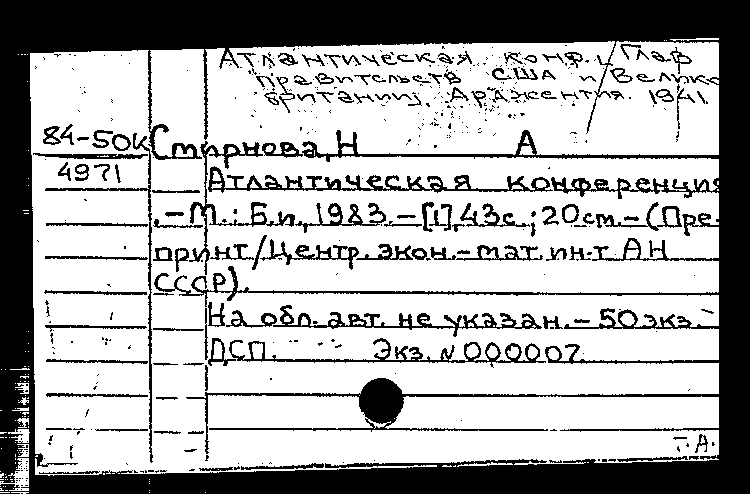 Атлантическая конф., Глав
правительств США и Велико
британии, Арджентия. 1941.
84-50к Смирнова, Н А
4971 Атлантическая конференция
.-М.: Б.и., 1983.-[1],43с.; 20см.-(Пре-
принт/Центр. экон.-мат. ин-т АН
СССР).
На обл. авт. не указан.-50экз.-
ДСП. Экз. N 000007.
Т.А.